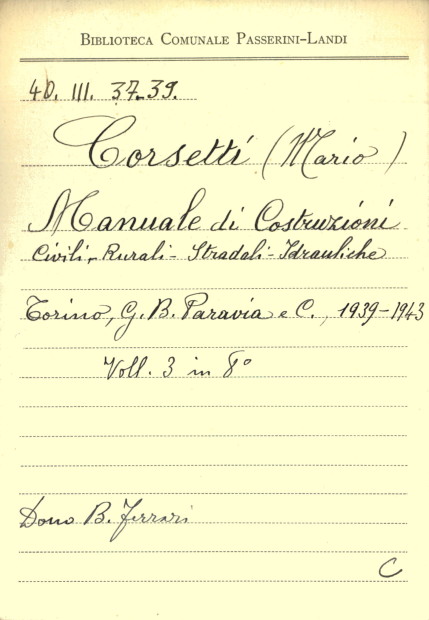 BIBLIOTECA COMUNALE PASSERINI-LANDI
4D. III. 37-39.
Corsetti (Mario)
Manuale di Costruzioni
Civili - Rurali - Stradali - Idrauliche
Torino, G. B. Paravia e C., 1939-1943
Voll. 3 in 8°
Dono B. Ferrari
C